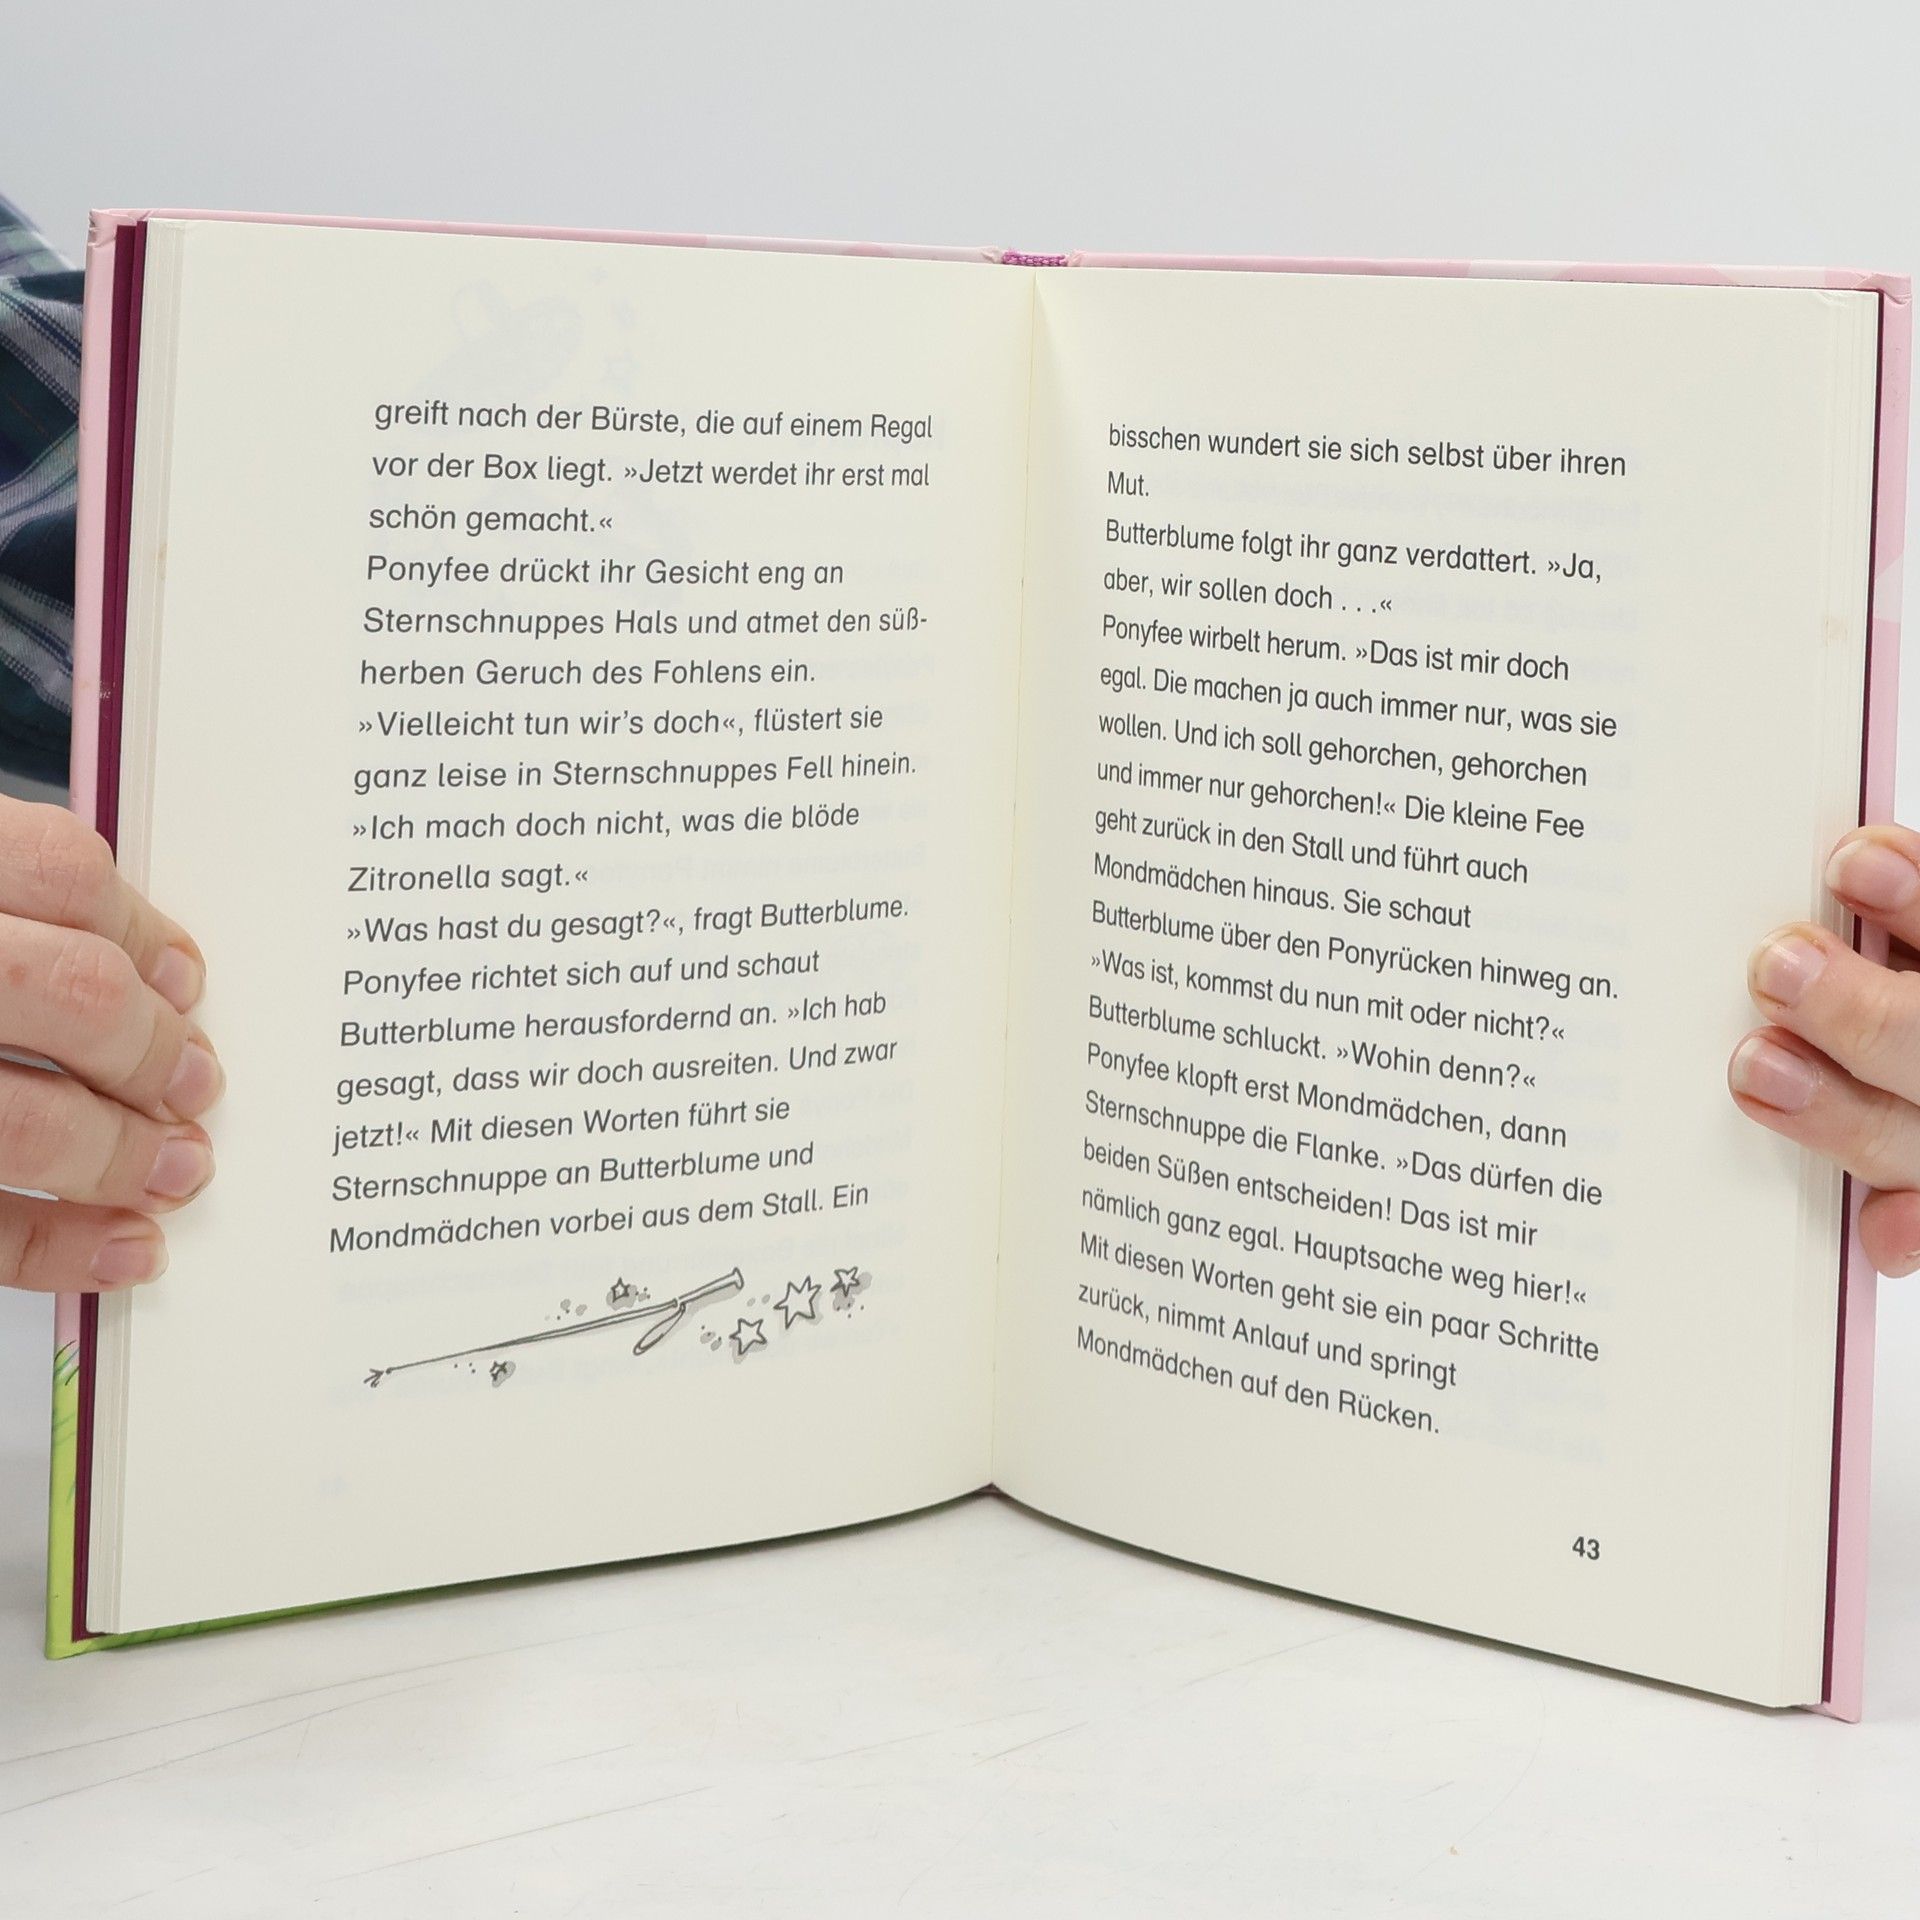 greift nach der Bürste, die auf einem Regal
vor der Box liegt. »Jetzt werdet ihr erst mal
schön gemacht.«
Ponyfee drückt ihr Gesicht eng an
Sternschnuppes Hals und atmet den süß-
herben Geruch des Fohlens ein.
»Vielleicht tun wir's doch«, flüstert sie
ganz leise in Sternschnuppes Fell hinein.
»Ich mach doch nicht, was die blöde
Zitronella sagt.«
»Was hast du gesagt?«, fragt Butterblume.
Ponyfee richtet sich auf und schaut
Butterblume herausfordernd an. »Ich hab
gesagt, dass wir doch ausreiten. Und zwar
jetzt!« Mit diesen Worten führt sie
Sternschnuppe an Butterblume und
Mondmädchen vorbei aus dem Stall. Ein
bisschen wundert sie sich selbst über ihren
Mut.
Butterblume folgt ihr ganz verdattert. »Ja,
aber, wir sollen doch . . .«
Ponyfee wirbelt herum. »Das ist mir doch
egal. Die machen ja auch immer nur, was sie
wollen. Und ich soll gehorchen, gehorchen
und immer nur gehorchen!« Die kleine Fee
geht zurück in den Stall und führt auch
Mondmädchen hinaus. Sie schaut
Butterblume über den Ponyrücken hinweg an.
»Was ist, kommst du nun mit oder nicht?«
Butterblume schluckt. »Wohin denn?«
Ponyfee klopft erst Mondmädchen, dann
Sternschnuppe die Flanke. »Das dürfen die
beiden Süßen entscheiden! Das ist mir
nämlich ganz egal. Hauptsache weg hier!«
Mit diesen Worten geht sie ein paar Schritte
zurück, nimmt Anlauf und springt
Mondmädchen auf den Rücken.
43